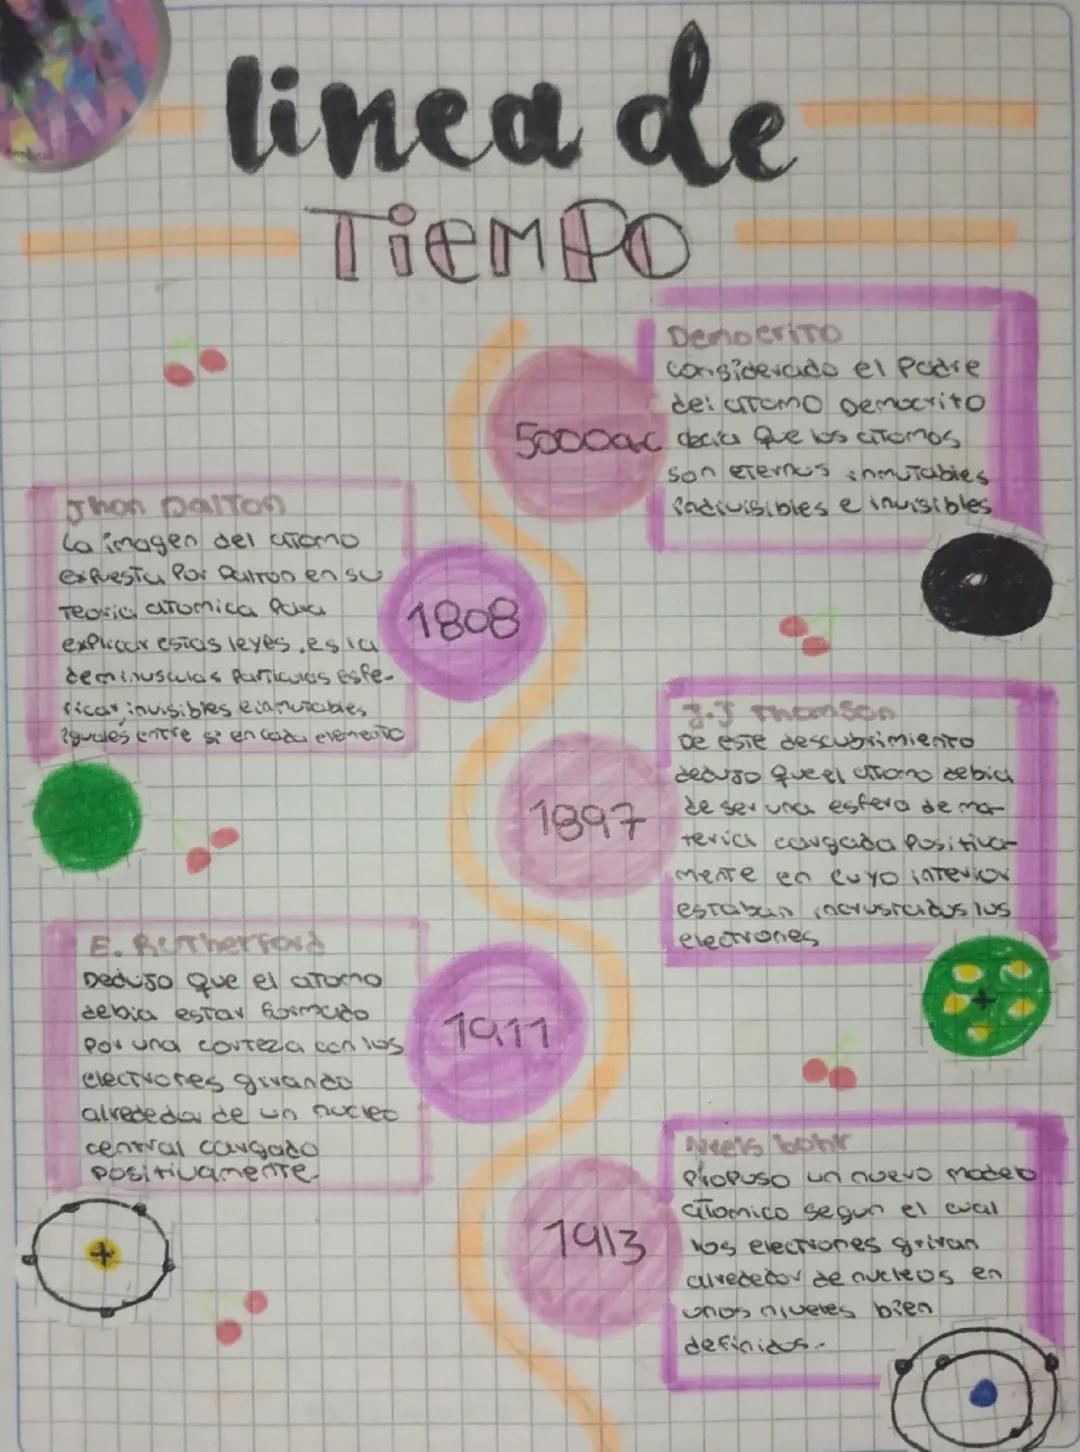 linea de
TiEMPO
DemocriTO
5000ac
considerado el Padre
del aTOMO Democrito
decia que los aTOMOS
son eTernos inmuTables
indivisibles e invisibles
Jhon DalTon
La imagen del aTomo
expuesTa Por DalTon en su
Teoria aTomica Para
explicar esTas leyes, es la
de minusculas ParTiculas esfe-
ricas, invisibles e inmuTables
iguales enTre si en cada elemenTo
1808
J.J Thomson
De esTe descubrimienTo
dedujo que el aTomo debia
de ser una esfera de ma-
Teria cargada Positiva-
menTe en cuyo inTerior
esTaban incrusTados los
elecTrones
1897
E. RuTherford
Dedujo que el aTomo
debia esTar formado
Por una corTeza con los
elecTrones girando
alrededor de un nucleo
cenTral cargado
PosiTivamenTe.
1911
Neels bohr
ProPuso un nuevo modelo
aTomico segun el cual
los elecTrones grivan
alrededor de nucleos en
unos niveles bien
definidos.
1913